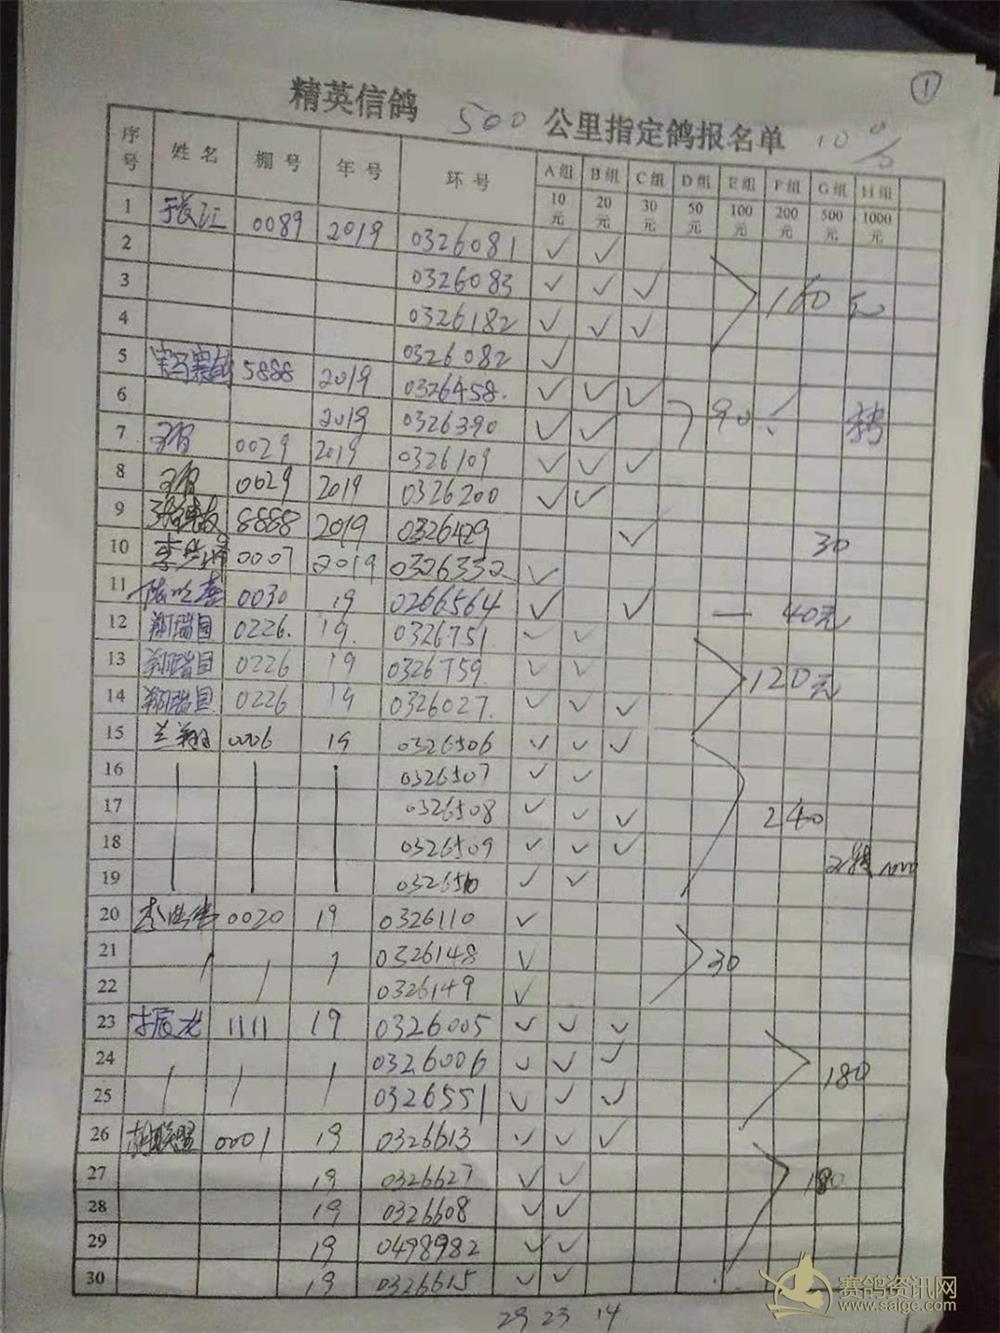 ①
精英信鸽 500 公里指定鸽报名单
序号 姓名 棚号 年号 环号 A组 B组 C组 D组 E组 F组 G组 H组
10元 20元 30元 50元 100元 200元 500元 1000元
1 0089 2019 0326081 ✓ ✓
2 0326083 ✓ ✓ ✓
3 0326182 ✓ ✓ ✓
4 0326082 ✓
5 5888 2019 0326458. ✓ ✓ ✓
6 2019 0326390 ✓ ✓ 90
7 0029 2019 0326109 ✓ ✓ ✓
8 0029 2019 0326200 ✓ ✓
9 8888 2019 0326429 ✓ 30
10 0007 2019 0326332 ✓
11 0030 19 0266564 ✓ ✓ — 40元
12 0226. 19. 0326751. ✓ ✓
13 0226 19 0326759. ✓ ✓ 120元
14 0226 19 0326027. ✓ ✓ ✓
15 兰翔 0006 19 0326506 ✓ ✓ ✓
16 0326507 ✓ ✓
17 0326508 ✓ ✓ ✓ 240
18 0326509 ✓ ✓ ✓
19 ✓ ✓
20 0020 19 0326110 ✓
21 0326148 ✓ 30
22 0326149 ✓
23 李辰龙 1111 19 0326005 ✓ ✓ ✓
24 0326006 ✓ ✓ ✓ 180
25 0326551 ✓ ✓ ✓
26 胡联盟 0001 19 0326613 ✓ ✓ ✓
27 19 0326627 ✓ ✓ 180
28 19 0326608 ✓ ✓
29 19 0498982 ✓ ✓
30 19 0326615 ✓ ✓
29 23 14
赛鸽资讯网
www.saige.com